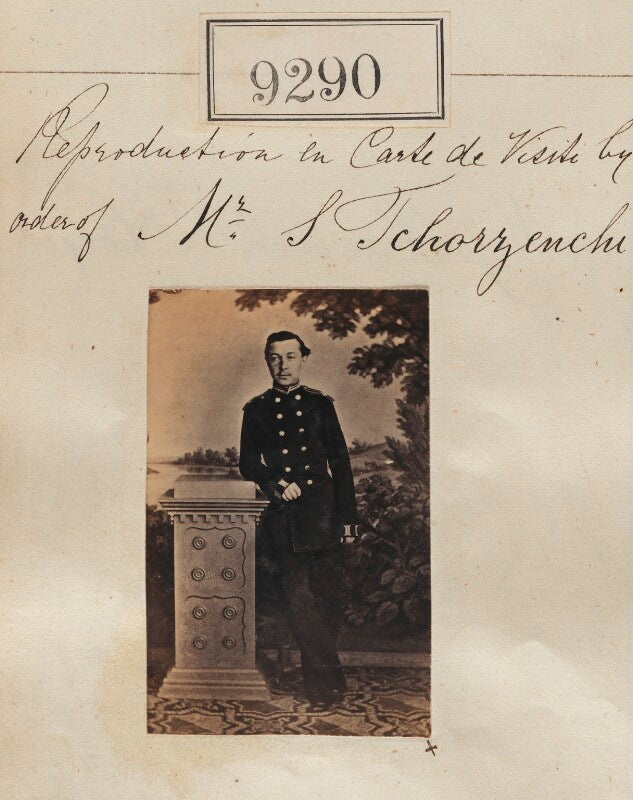 9290
Reproduction in Carte de Visite by
order of Mr. S Tchorzenchi